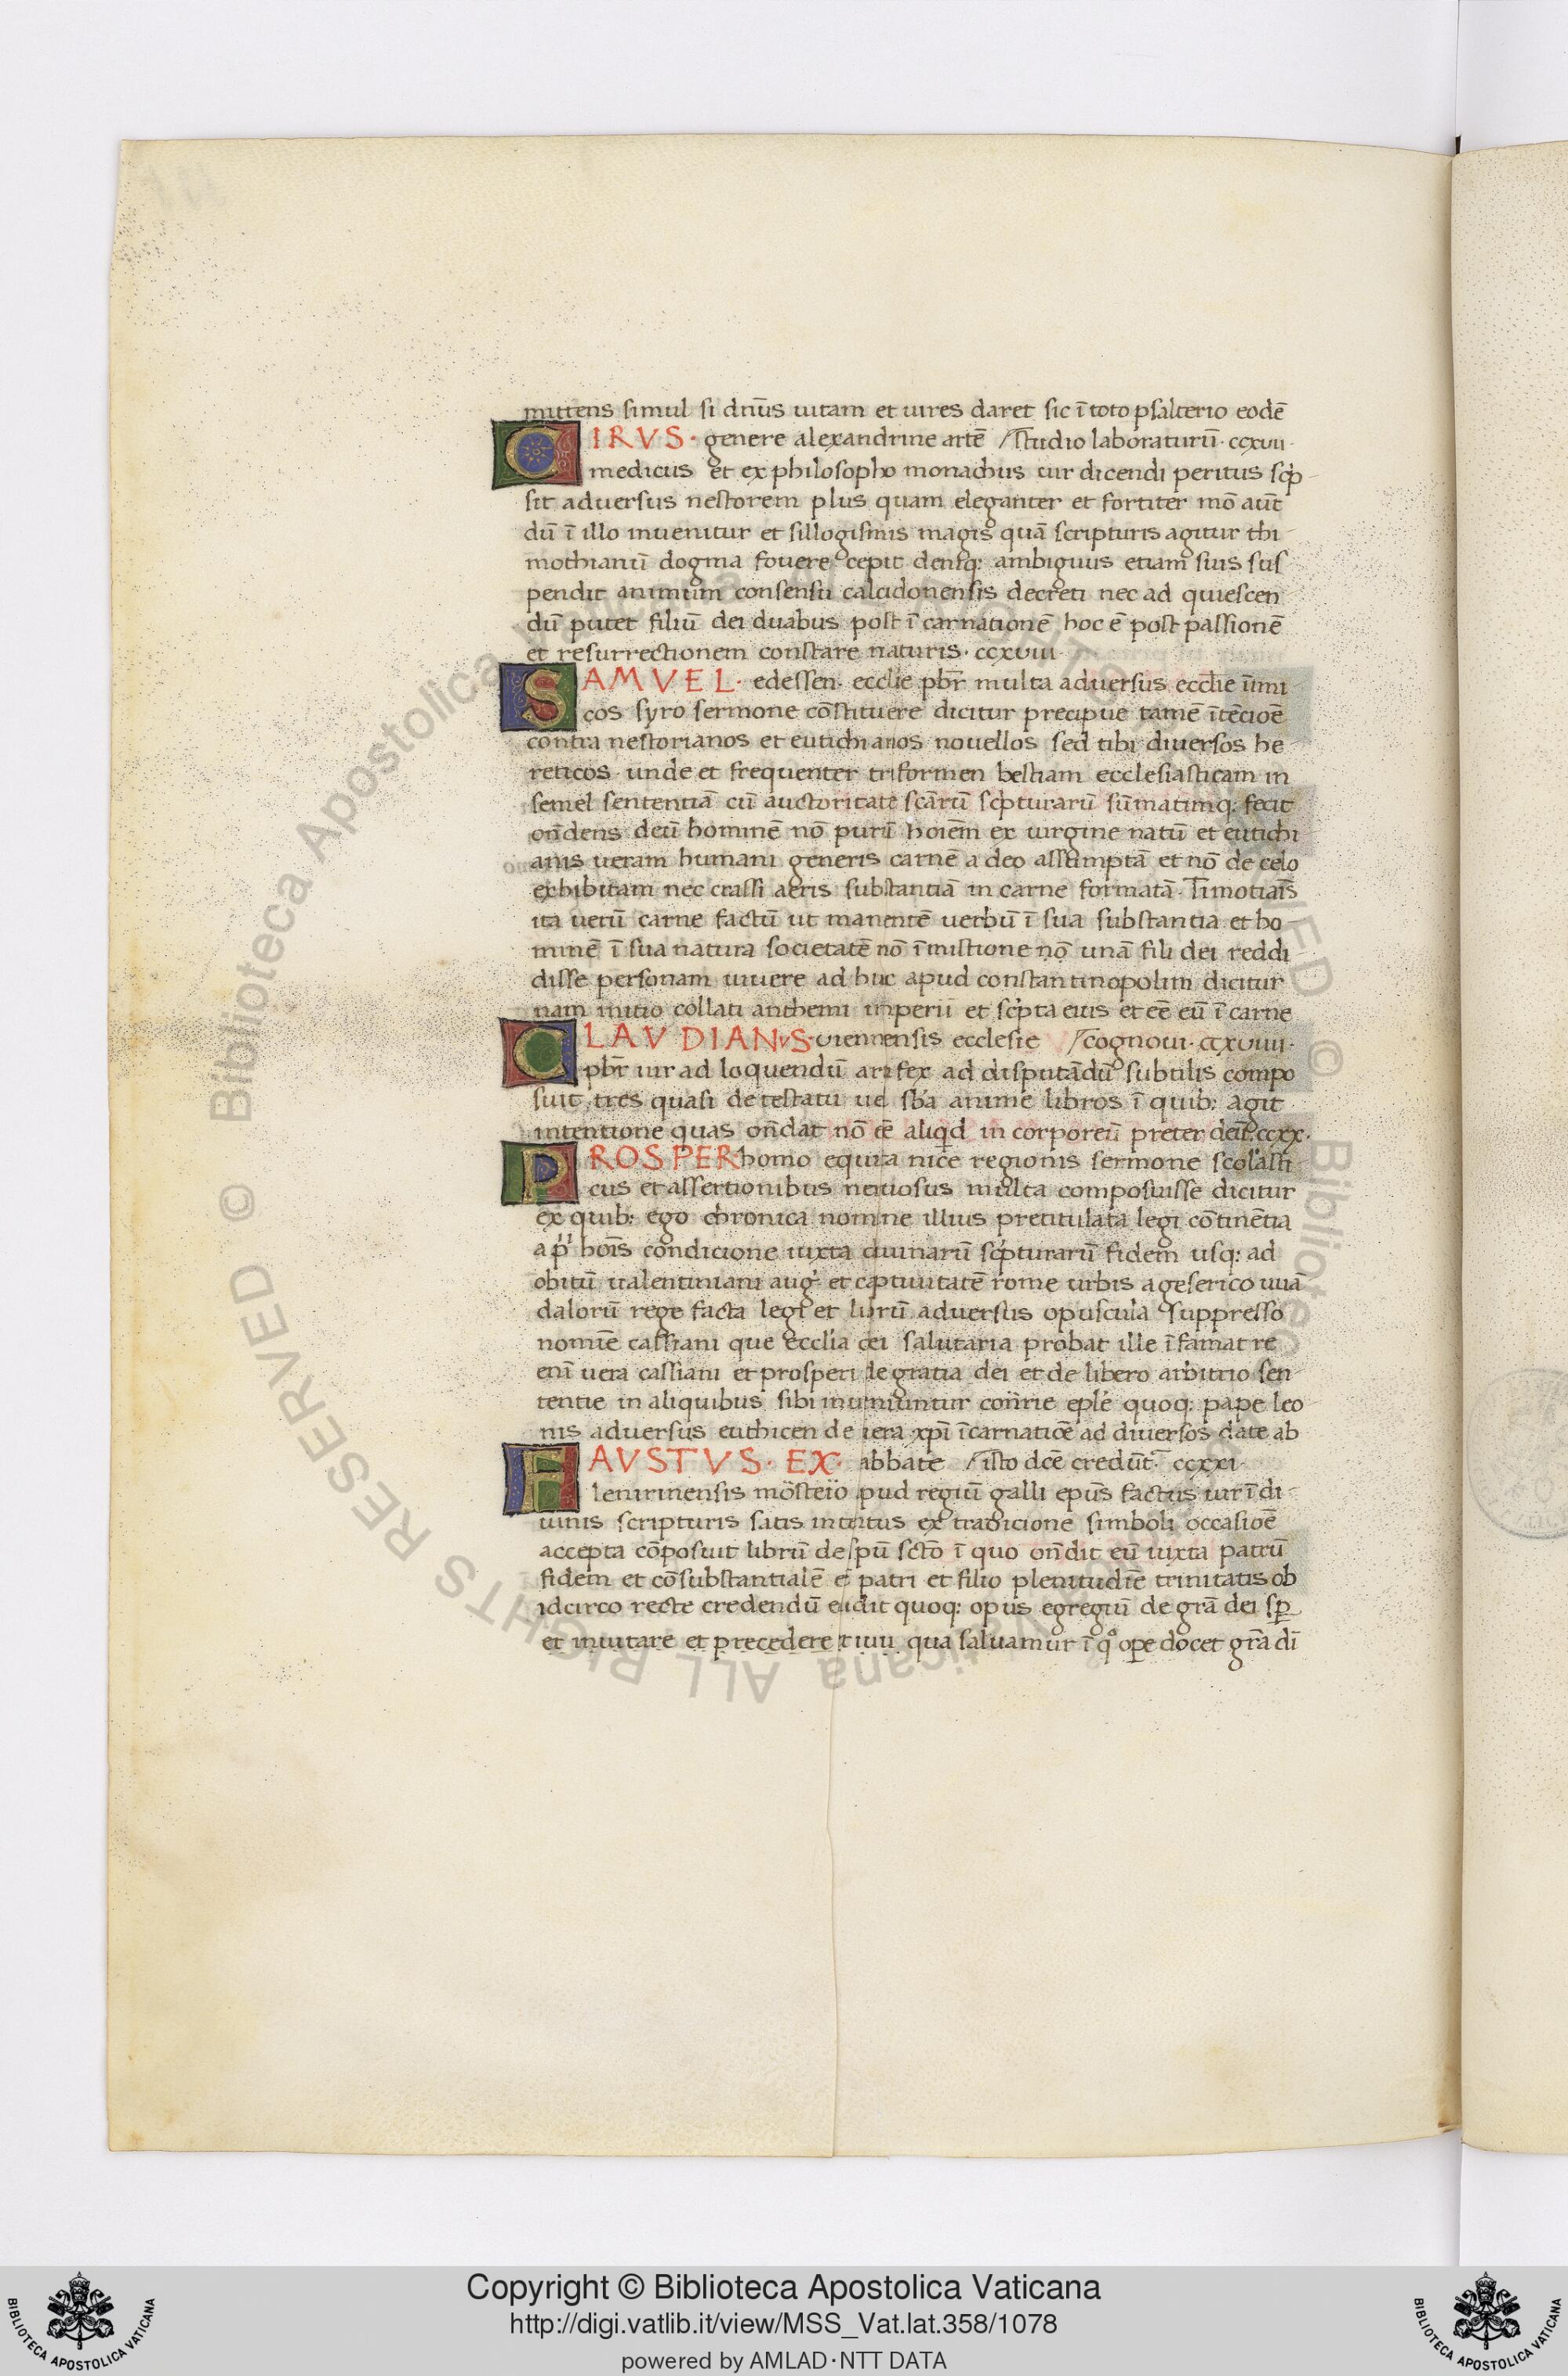 mittens simul si dñs uitam et uires daret sic ĩ toto psalterio eodẽ
CIRVS· genere alexandrine artẽ /studio laboraturũ· ccxvii·
medicus et ex philosopho monachus uir dicendi peritus scp̃
sit aduersus nestorem plus quam eleganter et fortiter mõ aũt
dũ ĩ illo inuenitur et sillogismis magis quã scripturis agitur thi
mothianũ dogma fouere cepit deniq; ambiguus etiam suis sus
pendit animum consensu calcidonensis decreti nec ad quiescen
dũ putet filiũ dei duabus post ĩ carnationẽ hoc ẽ post passionẽ
et resurrectionem constare naturis· ccxviii·
SAMVEL· edessen· ecclie pbr̃ multa aduersus ecclie ĩimi
cos syro sermone cõstituere dicitur precipue tamẽ ĩtẽcioẽ
contra nestorianos et eutichianos nouellos sed tibi diuersos he
reticos· unde et frequenter triformen bestiam ecclesiasticam in
semel sententiã cũ auctoritate scãrũ scp̃turarũ sũmatimq; fecit
oñdens deũ hominẽ nõ purũ hoiẽm ex uirgine natũ et eutichi
anis ueram humani generis carnẽ a deo assumptã et nõ de celo
exhibitam nec crassi aeris substantiã in carne formatã· Timotiaĩs
ita uerũ carne factũ ut manentẽ uerbũ ĩ sua substantia et ho
minẽ ĩ sua natura societatẽ nõ ĩmistione nõ unã fili dei reddi
disse personam uiuere ad huc apud constantinopolim dicitur
nam initio collati anthemi imperii et scp̃ta eius et eẽ eũ ĩ carne
CLAVDIANVS·uiennensis ecclesie /cognoui· ccxviiii·
pbr̃ uir ad loquendũ arifex ad disputãdũ subtilis compo
suit tres quasi de testatu uel sb̃a anime libros ĩ quib; agit
intentione quas oñdat nõ eẽ aliqd in corporeũ preter deũ· ccxx·
PROSPER homo equita nice regionis sermone scolasti
cus et assertionibus neruosus multa composuisse dicitur
ex quib; ego chronica nomine illius pretitulata legi cõtinẽtia
a p̃ hoĩs condicione iuxta diuinarũ scp̃turarũ fidem usq; ad
obitũ ualentiniani aug̃ et captiuitatẽ rome urbis a geserico uuã
dalorũ rege facta legi et librũ aduersus opuscula suppresso
nomĩe cassiani que ecclia dei salutaria probat ille ĩfamat re
enĩ uera cassiani et prosperi de gratia dei et de libero arbitrio sen
tentie in aliquibus sibi inueniuntur coñrie eplẽ quoq; pape leo
nis aduersus euthicen de uera xp̃i ĩcarnatioẽ ad diuersos date ab
FAVSTVS· EX· abbate /isto dcẽ credũt· ccxxi·
lenirinensis mõsteĩo apud regiũ galli epũs factus uir ĩ di
uinis scripturis satis intentus ex tradicione simboli occasioẽ
accepta cõposuit librũ de spũ scto ĩ quo oñdit eũ iuxta patrũ
fidem et cõsubstantialẽ et patri et filio plenitudiẽ trinitatis ob
idcirco recte credendũ edidit quoq; opus egregiũ de grã dei sp̃
et inuitare et precedere qua saluamur ĩ q° ope docet grã di
Copyright © Biblioteca Apostolica Vaticana
http://digi.vatlib.it/view/MSS_Vat.lat.358/1078
powered by AMLAD·NTT DATA
BIBLIOTECA APOSTOLICA VATICANA
BIBLIOTECA APOSTOLICA VATICANA
© Biblioteca Apostolica Vaticana ALL RIGHTS RESERVED